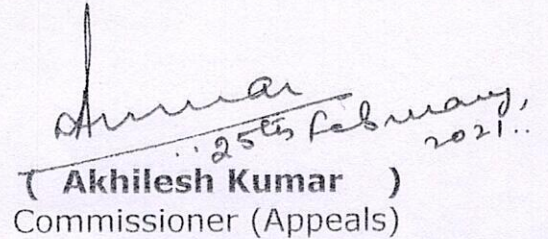 Kumar
25th February,
2021..
( Akhilesh Kumar )
Commissioner (Appeals)